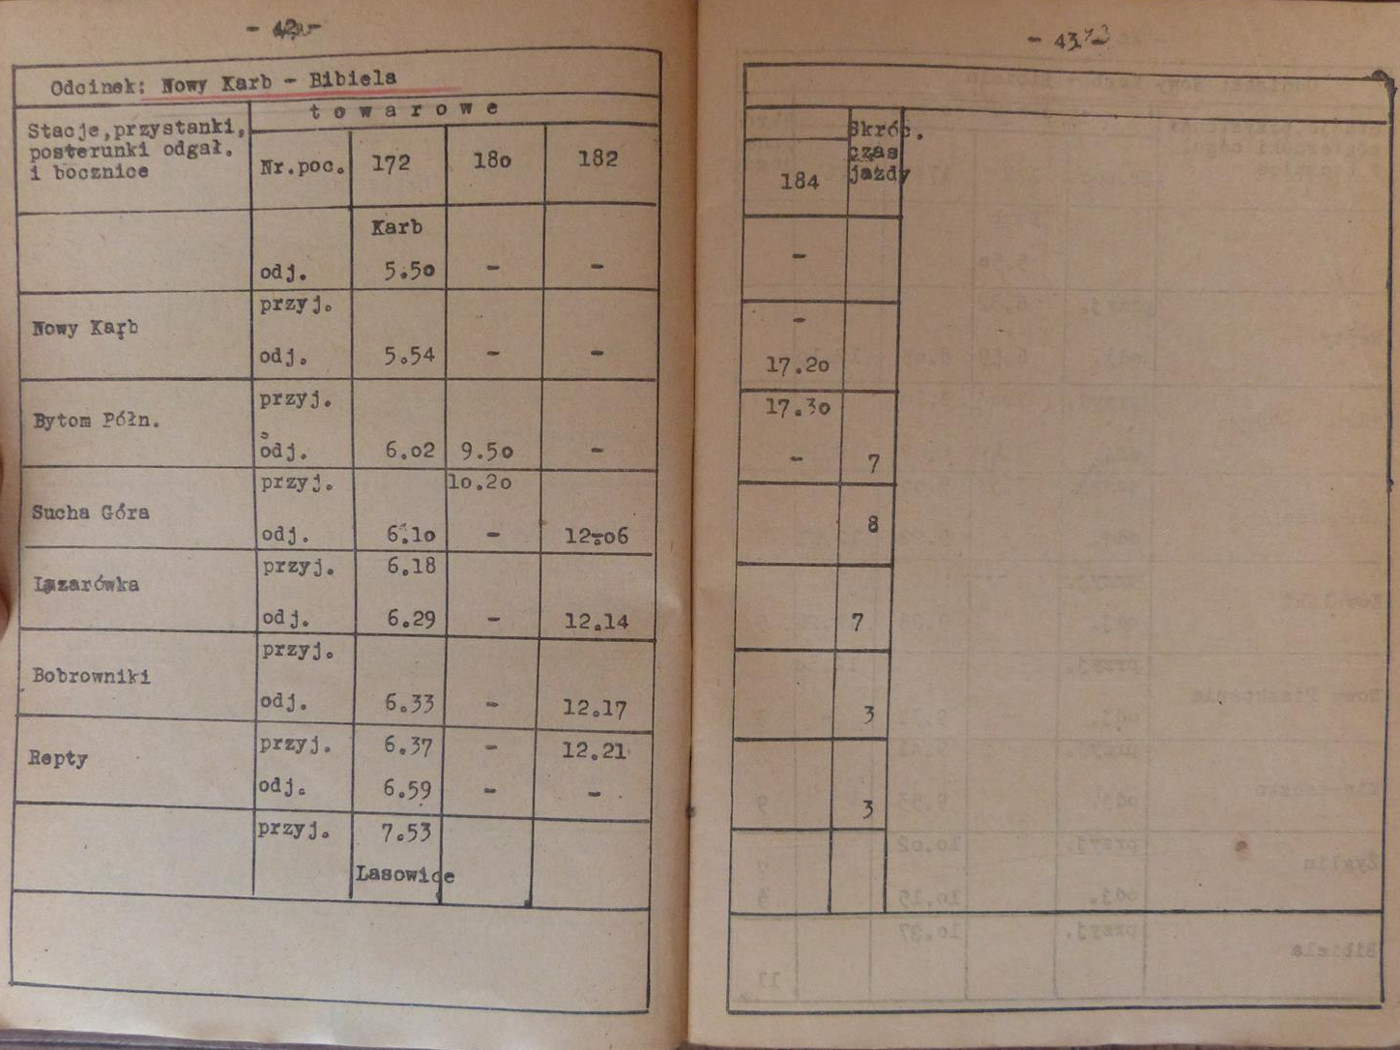 - 42 -
Odcinek: Nowy Karb - Bibiela
Stacje, przystanki, posterunki odgał. i bocznice
towarowe
Nr.poc. 172 18o 182
Karb
odj. 5.5o - -
Nowy Karb
przyj.
odj. 5.54 - -
Bytom Półn.
przyj.
odj. 6.o2 9.5o -
Sucha Góra
przyj. 1o.2o
odj. 6.1o - 12.o6
Lazarówka
przyj. 6.18
odj. 6.29 - 12.14
Bobrowniki
przyj.
odj. 6.33 - 12.17
Repty
przyj. 6.37 - 12.21
odj. 6.59 - -
przyj. 7.53
Lasowice
- 43 -
184
Skróc.
czas
jazdy
-
-
17.2o
17.3o
- 7
8
7
3
3